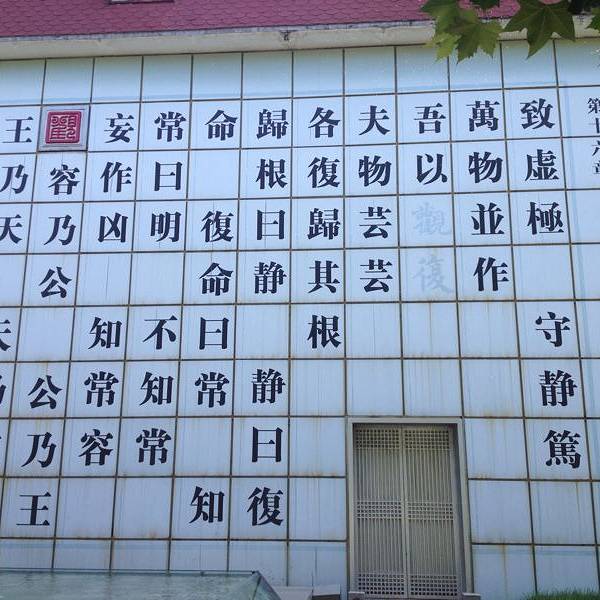 第十六章
致虚極 守静篤
萬物並作
吾以觀復
夫物芸芸
各復歸其根
歸根曰静 静曰復
命 復命曰常 知
常曰明 不知常
妄作凶 知常容
容乃公 公乃王
王乃天 天乃